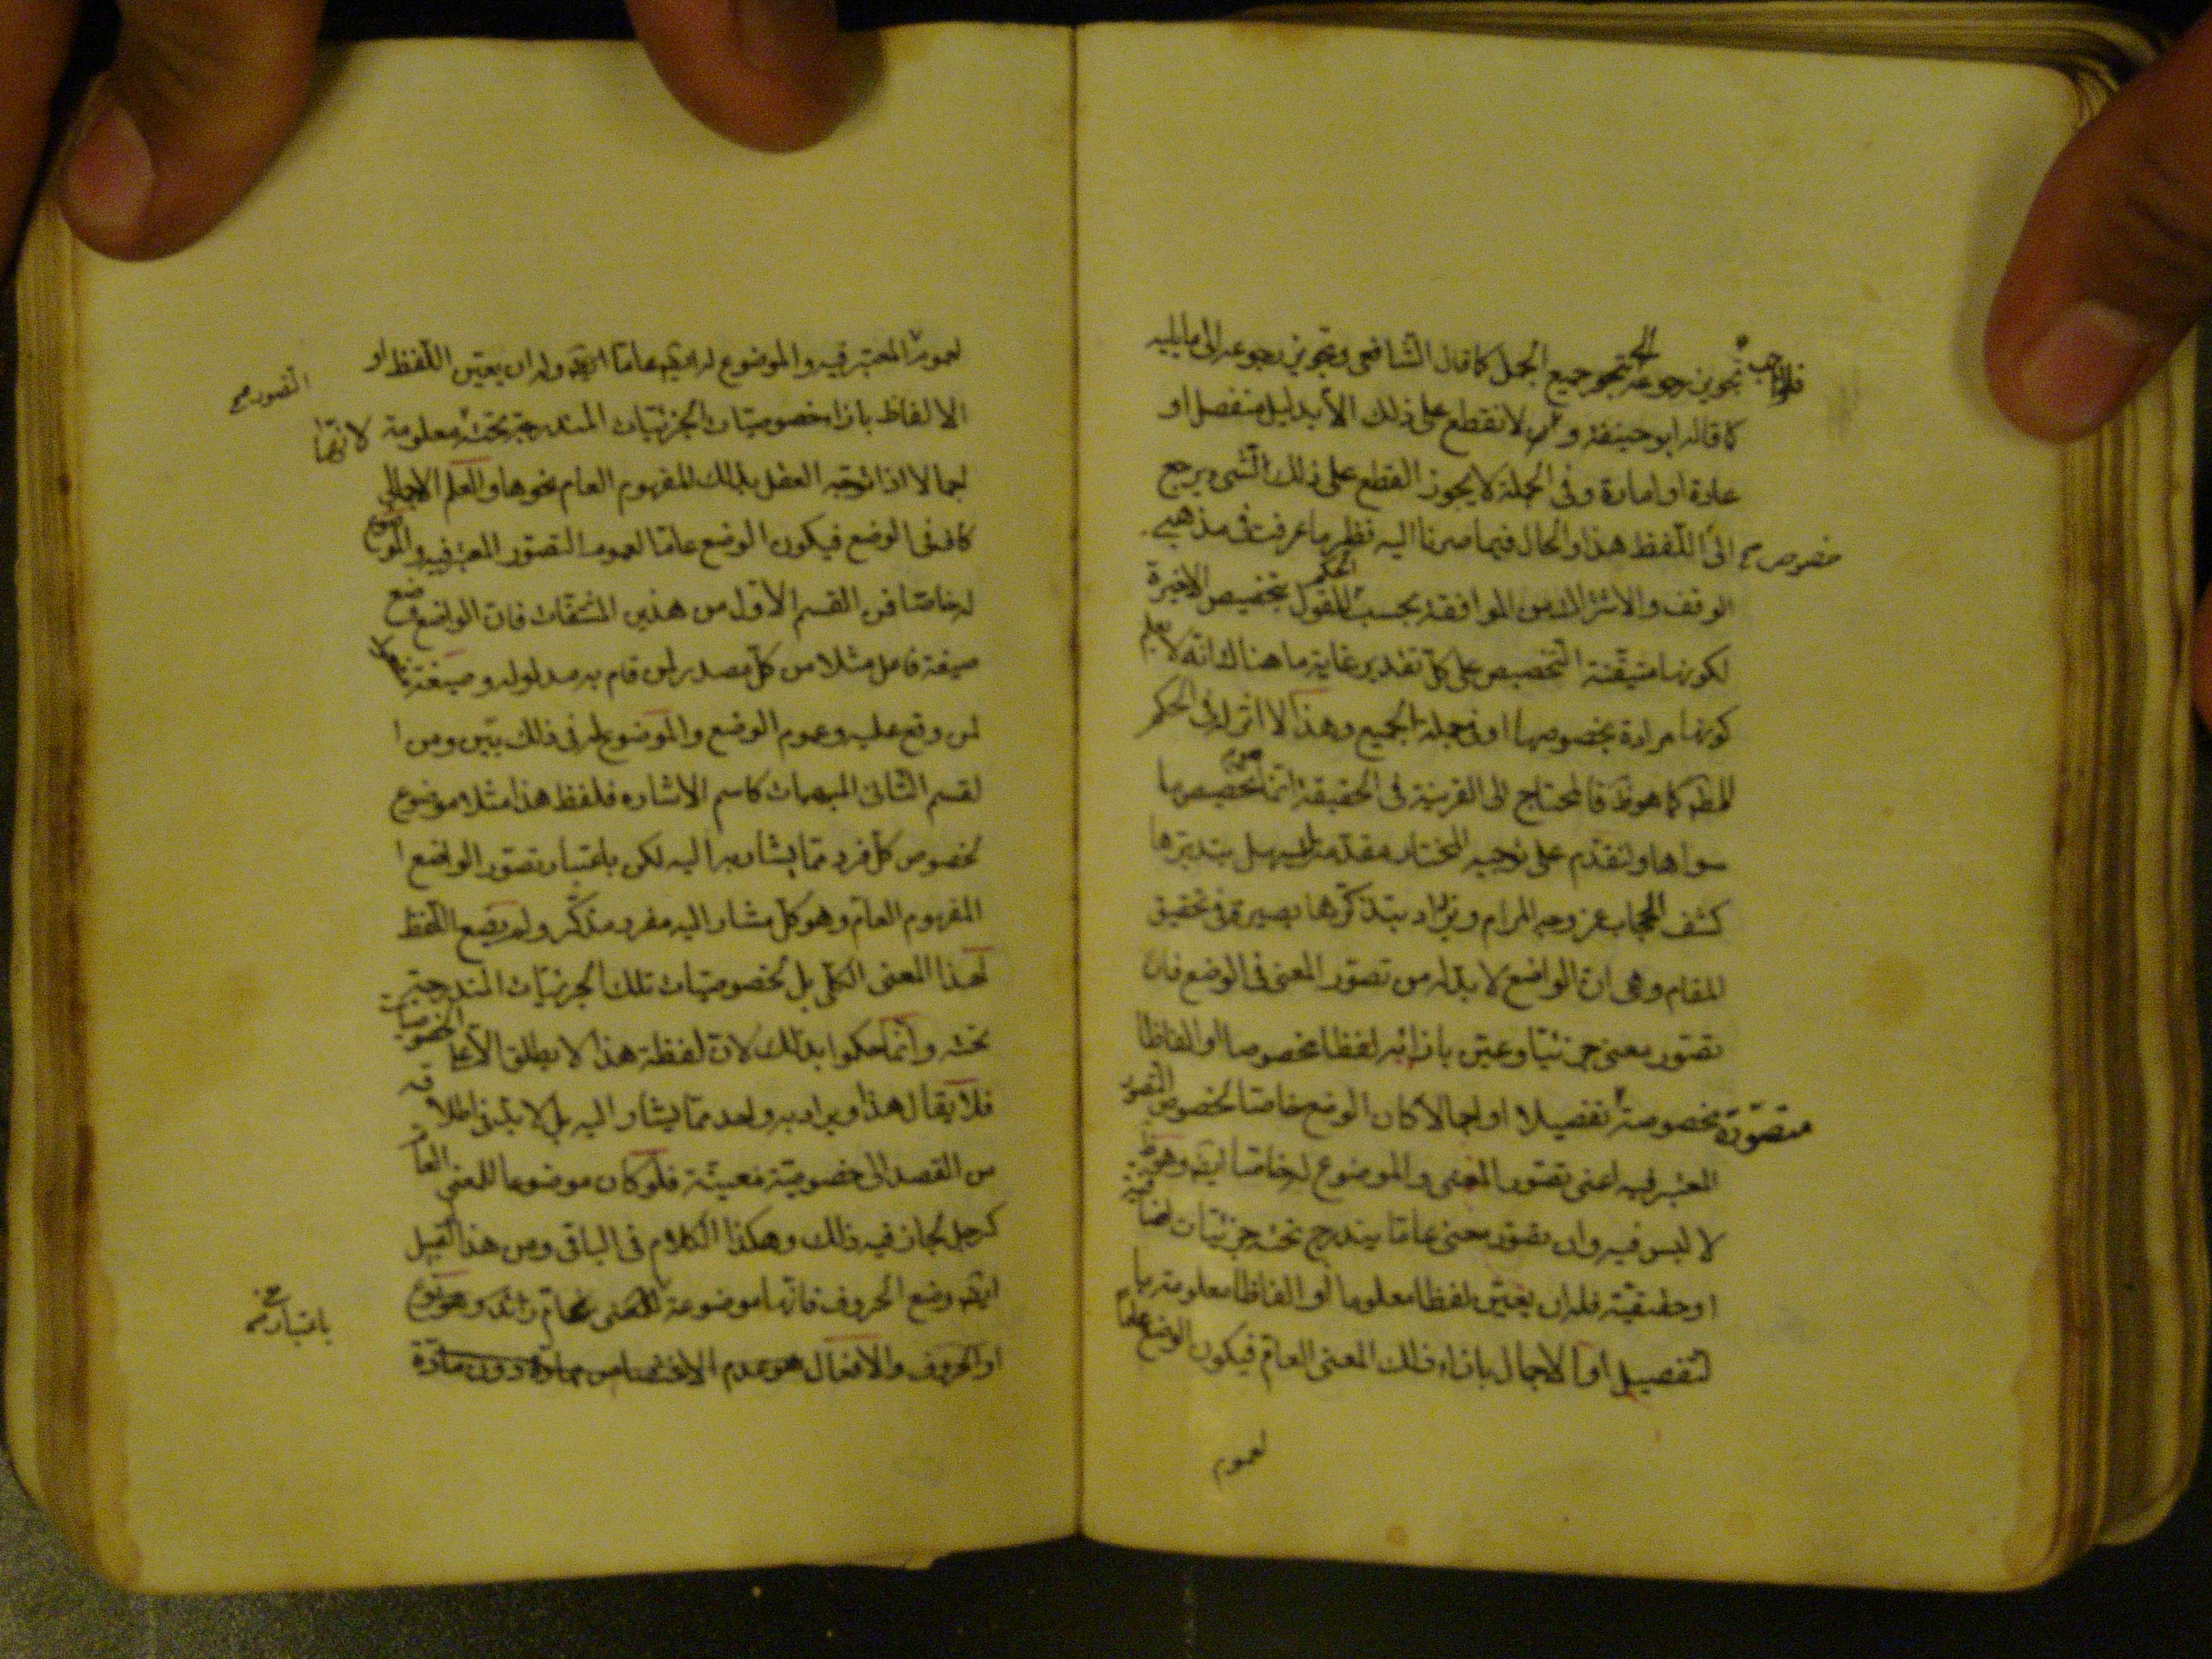 فالواجب تجويز رجوعه الى جميع الجمل كما قال الشافعى وتجويز رجوعه الى ما يليه
كما قاله ابو حنيفة و لا نقطع على ذلك الا بدليل منفصل او
عادة او امارة وفى الجملة لا يجوز القطع على ذلك لشىء يرجع
الى اللفظ هذا والحال فيما صرنا اليه نظير ما عرفت فى مذهبى
خصوص صح
الوقف والاشتراك من الموافقة بحسب الحكم للقول بتخصيص الاخيرة
لكونها متيقنة التخصيص على كل تقدير غاية ما هناك انه لا يعلم
كونها مرادة بخصوصها او فى جملة الجميع وهذا لا اثر له فى الحكم
المط كما هو ظ فالمحتاج الى القرينة فى الحقيقة انما تخصيص ما
سواها ولنقدم على توجيه المختار مقدمة يسهل بتدبرها
كشف الحجاب عن وجه المرام ويزداد بتذكرها بصيرة فى تحقيق
المقام وهى ان الواضع لا بد له من تصور المعنى فى الوضع فان
تصور معنى جزئيا وعين بازائه لفظا مخصوصا او الفاظا
متصورة
مخصوصة تفصيلا او اجمالا كان الوضع خاصا لخصوص التصور
المعتبر فيه اعنى تصور المعنى والموضوع له خاصا ايضا وهو
لا لبس فيه وان تصور معنى عاما يندرج تحته جزئيات اضافية
او حقيقية فله ان يعين لفظا معلوما او الفاظا معلومة با
لتفصيل او الاجمال بازاء ذلك المعنى العام فيكون الوضع عاما
لعموم
لعموم المعتبر فيه والموضوع له ايضا عاما ايضا وله ان يعين اللفظ او
التصور صح
الالفاظ بازاء خصوصيات الجزئيات المندرجة تحته معلومة لانها
اجمالا اذا توجه العقل بذلك المفهوم العام نحوها والعلم الاجمالى
كاف فى الوضع فيكون الوضع عاما لعموم التصور المعتبر فيه والموضوع
له خاصا فمن القسم الاول من هذين المشتقات فان الواضع وضع
صيغة فاعل مثلا من كل مصدر لمن قام به مدلوله وصيغة
لمن وقع عليه وعموم الوضع والموضوع له فى ذلك بين ومن ا
لقسم الثانى المبهمات كاسم الاشارة فلفظ هذا مثلا موضوع
لخصوص كل فرد مما يشار به اليه لكن باعتبار تصور الواضع ا
المفهوم العام وهو كل مشار اليه مفرد مذكر ولم يضع اللفظ
لهذا المعنى الكلى بل لخصوصيات تلك الجزئيات المندرجة
تحته وانما حكموا بذلك لان لفظة هذا لا يطلق الا على الخصوصيات
فلا يقال هذا ويراد به واحد مما يشار اليه بل لا بد فى اطلاقه
من القصد الى خصوصية معينة فلو كان موضوعا للمعنى العام
كرجل لجاز فيه ذلك وهكذا الكلام فى الباقى ومن هذا القبيل
ايضا وضع الحروف فانها موضوعة باعتبار معنى عام وهو نوع
باعتبار صح
او الحروف والافعال هو عدم الاختصاص بمادة دون مادة